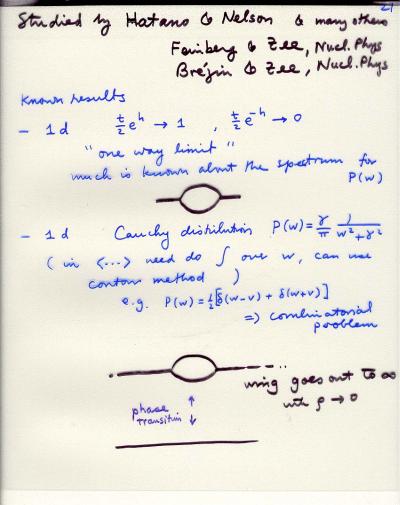 21
Studied by Hatano & Nelson & many others
Feinberg & Zee, Nucl. Phys
Brézin & Zee, Nucl. Phys
Known results
- 1d t/2 e^h → 1 , t/2 e^-h → 0
"one way limit"
much is known about the spectrum for
P(w)
- 1d Cauchy distribution P(w) = γ/π 1/(w²+γ²)
( in <...> need do ∫ over w, can use
contour method )
e.g. P(w) = ½[δ(w-v) + δ(w+v)]
⇒ combinatorial
problem
wing goes out to ∞
with ρ → 0
phase
transition